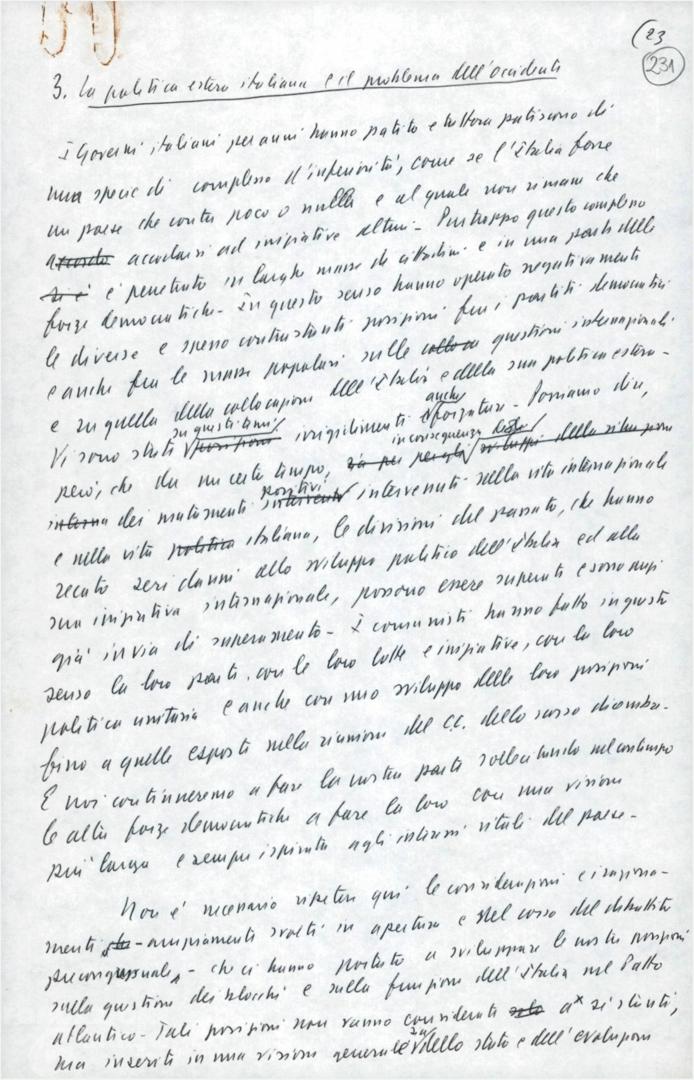 (23
231
3. La politica estera italiana e il problema dell'occidente
I Governi italiani per anni hanno patito e tuttora patiscono di
una specie di complesso d'inferiorità, come se l'Italia fosse
un paese che conta poco o nulla e al quale non rimane che
accodarsi ad iniziative altrui - Purtroppo questo complesso
si è è penetrato in larghe masse di cittadini e in una parte delle
forze democratiche - In questo senso hanno operato negativamente
le diverse e spesso contrastanti posizioni fra i partiti democratici
e anche fra le masse popolari sulle questioni internazionali
e su quella della collocazione dell'Italia e della sua politica estera -
Vi sono stati su questi temi posizioni irrigidimenti anche forzature - Possiamo dire,
però, che da un certo tempo, in conseguenza sviluppi della situazione
interna dei mutamenti positivi intervenuti intervenuti nella vita internazionale
e nella vita politica italiana, le divisioni del passato, che hanno
recato seri danni allo sviluppo politico dell'Italia ed alla
sua iniziativa internazionale, possono essere superate e sono anzi
già in via di superamento - I comunisti hanno fatto in questo
senso la loro parte, con le loro lotte e iniziative, con la loro
politica unitaria e anche con uno sviluppo delle loro posizioni
fino a quelle esposte nella riunione del C.C. dello scorso dicembre.
E noi continueremo a fare la nostra parte sollecitando nel contempo
le altre forze democratiche a fare la loro con una visione
più larga e sempre ispirata agli interessi vitali del paese -
Non è necessario ripetere qui le considerazioni e i ragiona-
menti - ampiamente svolti in apertura e nel corso del dibattito
precongressuale - che ci hanno portato a sviluppare le nostre posizioni
sulla questione dei blocchi e sulla funzione dell'Italia nel Patto
atlantico - Tali posizioni non vanno considerate solo a sé stanti,
ma inserite in una visione generale dello stato e dell'evoluzione